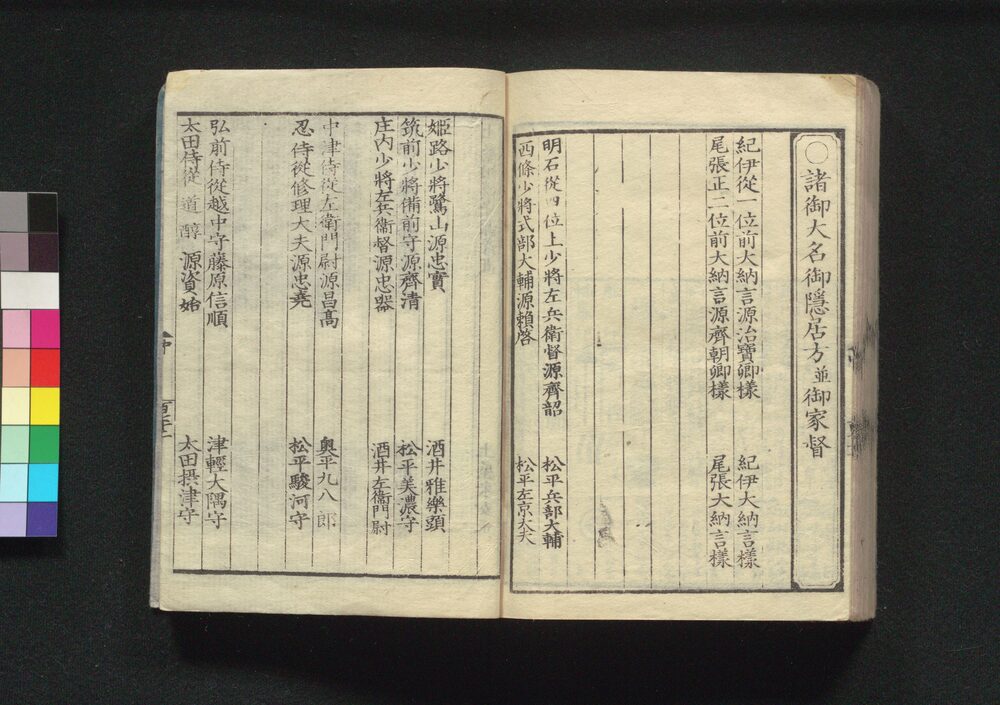 ○諸御大名御隱居方並御家督
紀伊從一位前大納言源治寶卿樣 紀伊大納言樣
尾張正二位前大納言源齊朝卿樣 尾張大納言樣
明石從四位上少將左兵衛督源齊韶 松平兵部大輔
西條少將式部大輔源賴啓 松平左京大夫
姬路少將鷺山源忠實 酒井雅樂頭
筑前少將備前守源齊清 松平美濃守
庄內少將左兵衞督源忠器 酒井左衞門尉
中津侍從左衞門尉源昌高 奥平九八郎
忍侍從修理大夫源忠堯 松平駿河守
弘前侍從越中守藤原信順 津輕大隅守
太田侍從道醇源資始 太田摂津守
中